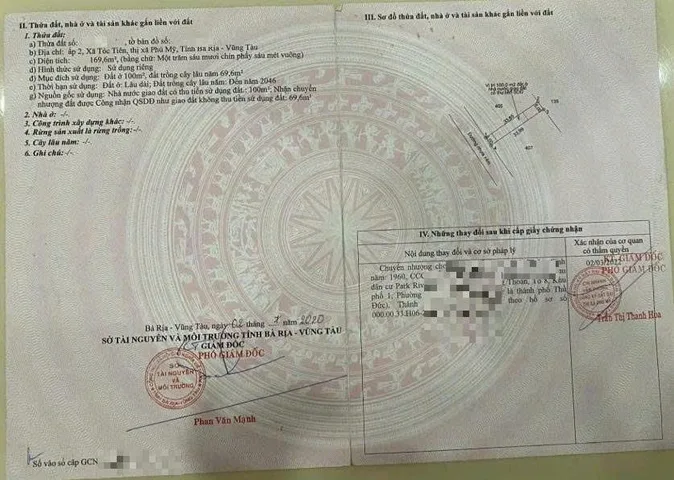 II. Thửa đất, nhà ở và tài sản khác gắn liền với đất
1. Thửa đất:
a) Thửa đất số: , tờ bản đồ số:
b) Địa chỉ: ấp 2, Xã Tóc Tiên, thị xã Phú Mỹ, Tỉnh Bà Rịa - Vũng Tàu
c) Diện tích: 169,6m², (bằng chữ: Một trăm sáu mươi chín phẩy sáu mét vuông)
d) Hình thức sử dụng: Sử dụng riêng
đ) Mục đích sử dụng: Đất ở 100m², đất trồng cây lâu năm 69,6m²
e) Thời hạn sử dụng: Đất ở: Lâu dài; Đất trồng cây lâu năm: Đến năm 2046
g) Nguồn gốc sử dụng: Nhà nước giao đất có thu tiền sử dụng đất: 100m²; Nhận chuyển
nhượng đất được Công nhận QSDĐ như giao đất không thu tiền sử dụng đất: 69,6m²
2. Nhà ở: -/-
3. Công trình xây dựng khác: -/-
4. Rừng sản xuất là rừng trồng: -/-
5. Cây lâu năm: -/-
6. Ghi chú: -/-
Bà Rịa - Vũng Tàu, ngày 02 tháng 1 năm 2020
SỞ TÀI NGUYÊN VÀ MÔI TRƯỜNG TỈNH BÀ RỊA - VŨNG TÀU
KT GIÁM ĐỐC
PHÓ GIÁM ĐỐC
SỞ
TÀI NGUYÊN
VÀ
MÔI TRƯỜNG
Phan Văn Mạnh
Số vào sổ cấp GCN
III. Sơ đồ thửa đất, nhà ở và tài sản khác gắn liền với đất
407
IV. Những thay đổi sau khi cấp giấy chứng nhận
Nội dung thay đổi và cơ sở pháp lý
Xác nhận của cơ quan
có thẩm quyền
Chuyển nhượng cho
năm: 1960, CCC
dân cư Park Riv Thoan, Tổ 8, Khu
phố 1, Phường là thành phố Thủ
Đức), Thành theo hồ sơ số
000.00.33.H06-
KT. GIÁM ĐỐC
PHÓ GIÁM ĐỐC
Trần Thị Thanh Hoa